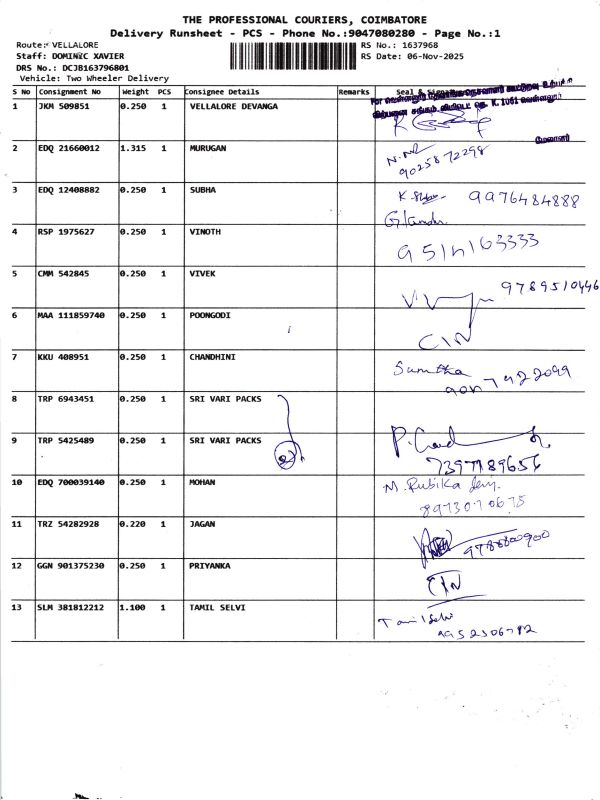 THE PROFESSIONAL COURIERS, COIMBATORE
Delivery Runsheet - PCS - Phone No.:9047080280 - Page No.:1
Route: VELLALORE RS No.: 1637968
Staff: DOMINIC XAVIER RS Date: 06-Nov-2025
DRS No.: DCJB163796801
Vehicle: Two Wheeler Delivery
S No Consignment No Weight PCS Consignee Details Remarks Seal &
1 JKM 509851 0.250 1 VELLALORE DEVANGA
2 EDQ 21660012 1.315 1 MURUGAN 9025872298
3 EDQ 12408882 0.250 1 SUBHA 9976484888
4 RSP 1975627 0.250 1 VINOTH
5 CMM 542845 0.250 1 VIVEK 9789510446
6 MAA 111859740 0.250 1 POONGODI
7 KKU 408951 0.250 1 CHANDHINI
8 TRP 6943451 0.250 1 SRI VARI PACKS
9 TRP 5425489 0.250 1 SRI VARI PACKS
7397189656
10 EDQ 700039140 0.250 1 MOHAN M. Rubika
11 TRZ 54282928 0.220 1 JAGAN
12 GGN 901375230 0.250 1 PRIYANKA
13 SLM 381812212 1.100 1 TAMIL SELVI Tamil Selvi